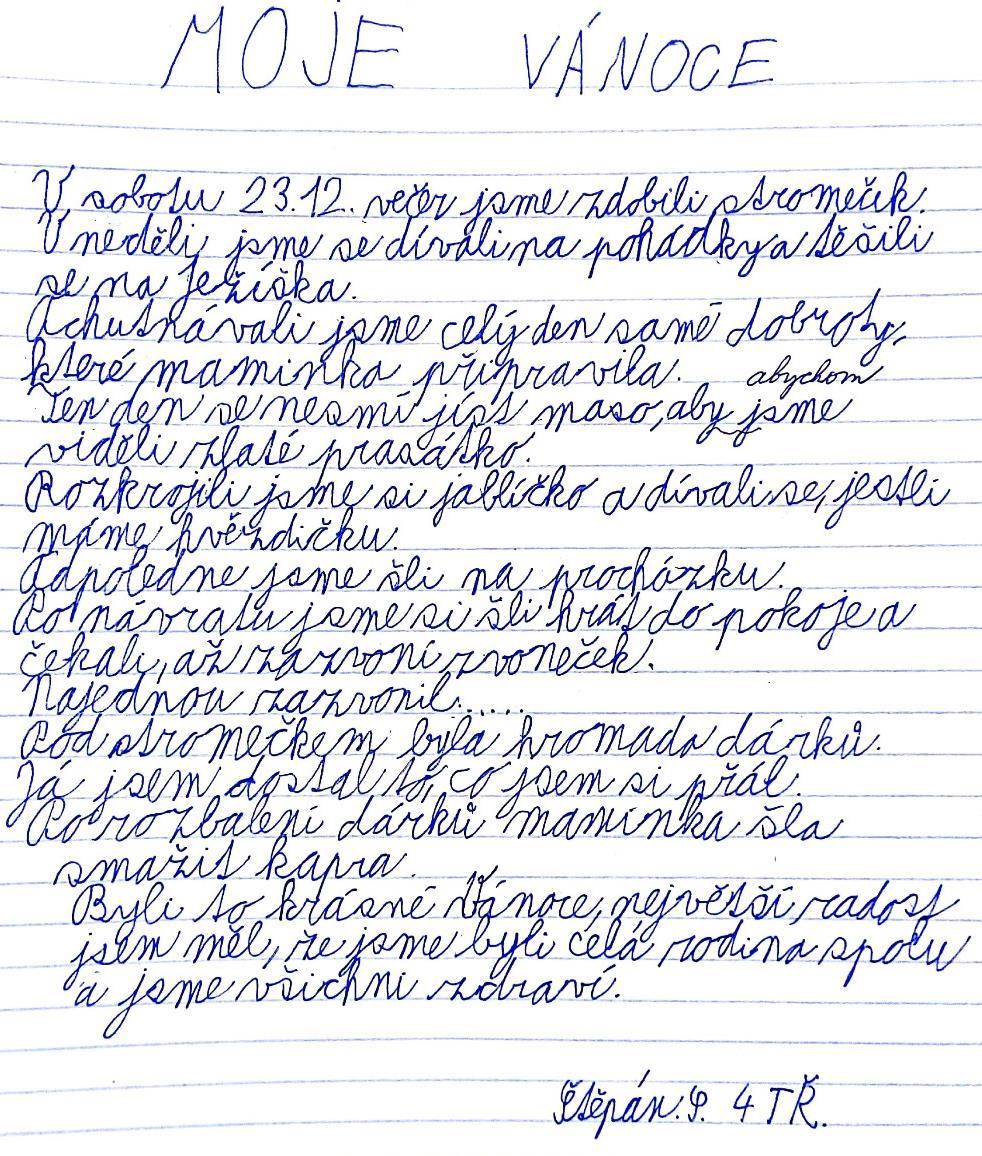 MOJE VÁNOCE
V sobotu 23.12. večer jsme zdobili stromeček.
V neděli jsme se dívali na pohádky a těšili
se na Ježíška.
Ochutnávali jsme celý den samé dobroty,
které maminka připravila.
abychom
Ten den se nesmí jíst maso, aby jsme
viděli zlaté prasátko.
Rozkrojili jsme si jablíčko a dívali se, jestli
máme hvězdičku.
Odpoledne jsme šli na procházku.
Po návratu jsme si šli hrát do pokoje a
čekali, až zazvoní zvoneček.
Najednou zazvonil.....
Pod stromečkem byla hromada dárků.
Já jsem dostal to, co jsem si přál.
Po rozbalení dárků maminka šla
smažit kapra.
Byli to krásné Vánoce, největší radost
jsem měl, že jsme byli celá rodina spolu
a jsme všichni zdraví.
Štěpán. P. 4 TŘ.